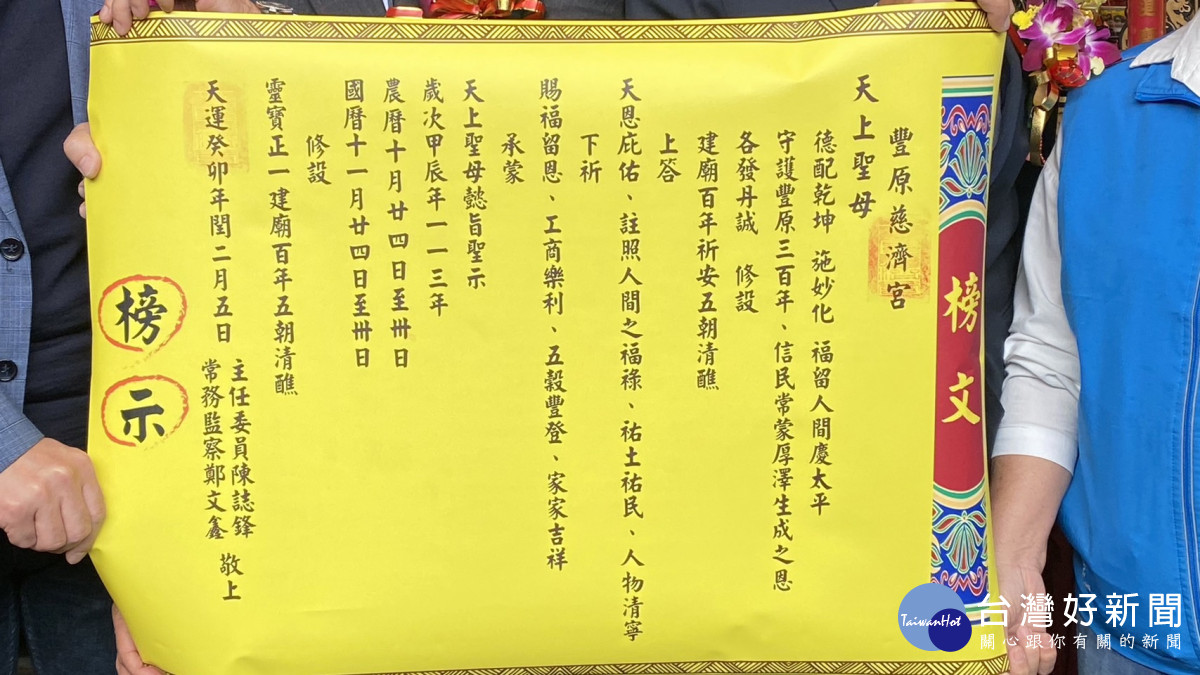 榜文
豐原慈濟宮
天上聖母
德配乾坤 施妙化 福留人間慶太平
守護豐原三百年、信民常蒙厚澤生成之恩
各發丹誠 修設
建廟百年祈安五朝清醮
上答
天恩庇佑、註照人間之福祿、祐土祐民、人物清寧
下祈
賜福留恩、工商樂利、五穀豐登、家家吉祥
承蒙
天上聖母懿旨聖示
歲次甲辰年一一三年
農曆十月廿四日至卅日
國曆十一月廿四日至卅日
修設
靈寶正一建廟百年五朝清醮
天運癸卯年閏二月五日
主任委員陳誌鋒
常務監察鄭文鑫
敬上
榜示
TaiwanHot
台灣好新聞
關心跟你有關的新聞